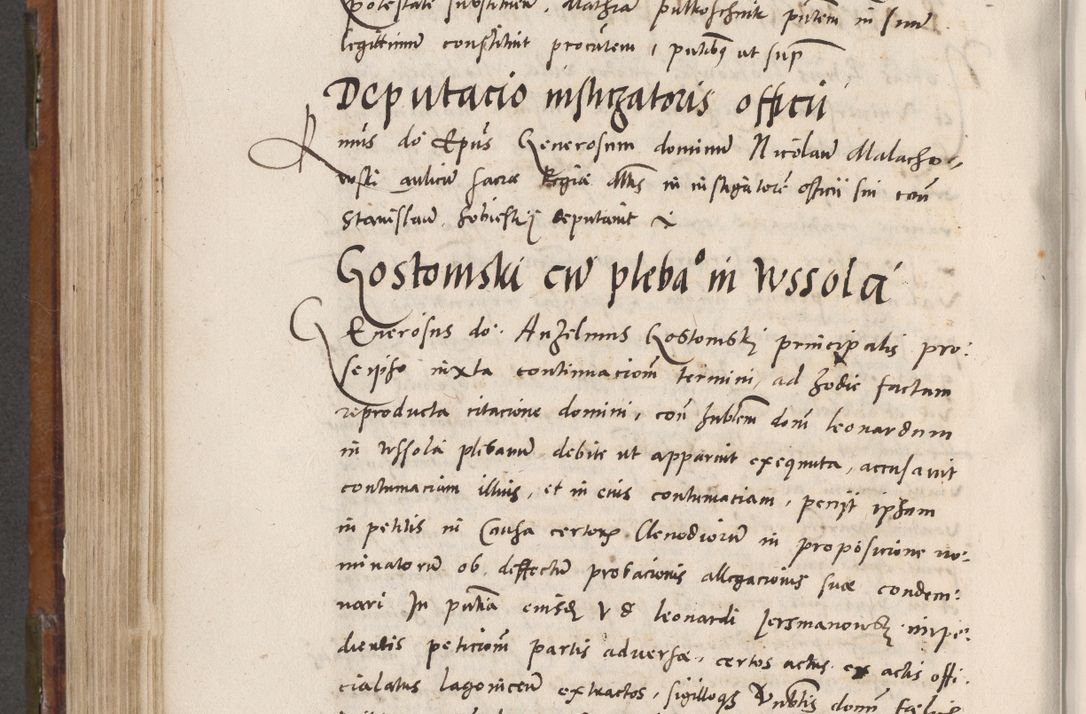 potestate substituen. Mathia pulkoschnik pntem in suum
legittimum constituit procutem, pntibus ut supra
Deputacio instigatoris officii
Rmus do Epus Generosum dominum Nicolaum Malacho-
wski aulicum sacrae Regiae Mtis in instigatore officii sui con
Stanislaum Sobiesky deputavit
Gostomski cum plebano in Wssola
Generosus do. Anzelmus Gostomsky principalis pro:
se ipso iuxta continuacionem termini, ad hodie factam
reproducta citacione domini, con hublem dom leonardum
in Wssola plebanum debite ut apparuit exequuta, accusavit
contumaciam illius, et in eius contumaciam, peciit ipsum
in petitis in Causa certorum Clenodiorum in proposicione no-
minatorum ob deffectum probacionis allegacionis suae condem:
nari In pntia eiusdem V d leonardi Jersmanowsky impe:
dientis peticionem partis adversae, certos actus ex actis offi.
cialatus lagonicen extractos, sigilloque Vnblis domi faelicis